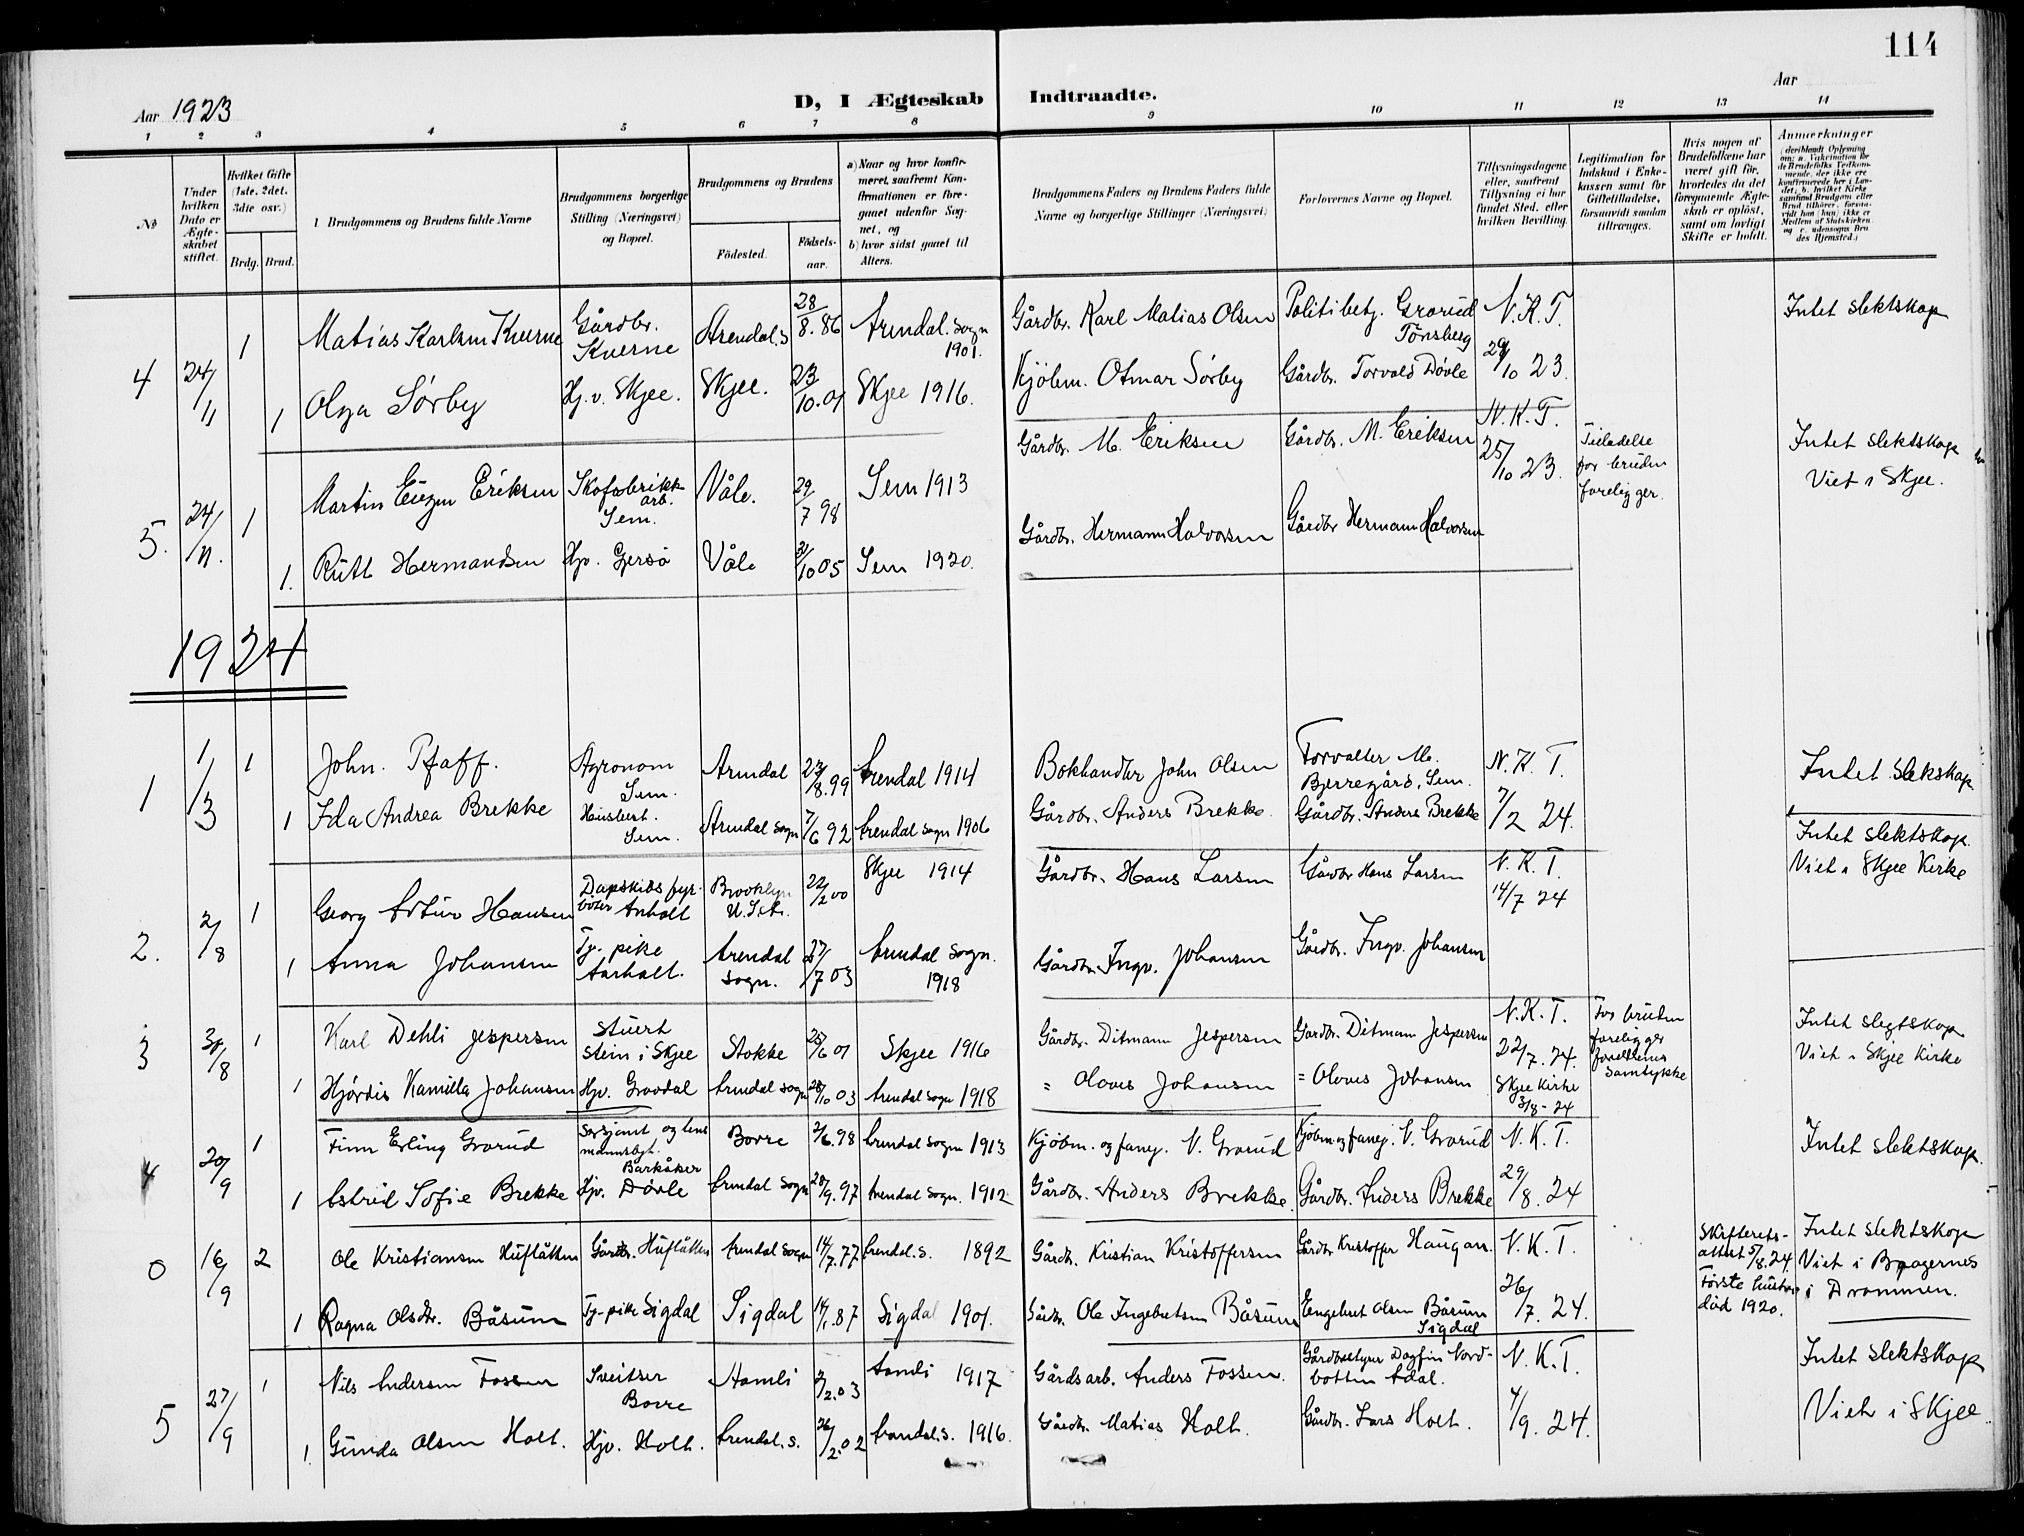 114
Aar 1923
D, I Ægteskab Indtraadte.
Aar
1 2 3 4 5 6 7 8 9 10 11 12 13 14
No
Under hvilken Dato er Ægteskabet stiftet.
Hvilket Gifte (1ste. 2det. 3die osv.)
Brdg. Brud.
Brudgommens og Brudens fulde Navne
Brudgommens borgerlige Stilling (Næringsvei) og Bopæl.
Brudgommens og Brudens
Fødested.
Fødselsaar.
a) Naar og hvor konfirmeret, saafremt Konfirmationen er foregaaet udenfor Sognet, og
b) hvor sidst gaaet til Alters.
Brudgommens Faders og Brudens Faders fulde Navne og borgerlige Stillinger (Næringsvei)
Forlovernes Navne og Bopæl.
Tillysningsdagene eller, saafremt Tillysning ei har fundet Sted, efter hvilken Bevilling
Legitimation for Indskud i Enkekassen samt for Giftetilladelse, forsaavidt saadan tiltrænges.
Hvis nogen af Brudefolkene har været gift før, hvorledes da det foregaaende Ægteskab er opløst, samt om lovligt Skifte er holdt.
Anmerkninger
(deriblandt Oplysning om: a. Vakcination for de Brudefolks Vedkommende, der ikke ere konfirmerede her i Landet; b. hvilket Kirkesamfund Brudgom eller Brud tilhører, forsaavidt han (hun) ikke er Medlem af Statskirken, og c. udensogns Brudes Hjemsted.)
4 24/11 1 Matias Karlsen Kverne Gårdbr. Kverne Arendal.s 28/8.86 Arendal. sogn 1901. Gårdbr. Karl Matias Olsen Politibetj. Grorud Tønsberg N.K.T. 29/10 23. Intet slektskap
1 Olga Sørby Hj. v. Skjee. Skjee. 23/10.01 Skjee 1916. Kjøbm. Otmar Sørby Gårdbr. Torvald Døvle
5. 24/11. 1 Martin Eugen Eriksen Skofabrikkarb. Sem. Våle. 29/7 98 Sem 1913 Gårdbr. M. Eriksen Gårdbr. M. Eriksen N.K.T. 25/10 23. Tilladelse for bruden foreligger. Intet slektskap Viet i Skjee.
1. Rutt Hermandsen Hjv. Gjersø Våle 31/10 05 Sem 1920. Gårdbr. Hermann Halvorsen Gårdbr Hermann Halvorsen
1924
1 1/3 1 John. Pfaff. Agronom Sem. Arendal 23/8.99 Arendal 1914 Bokhandler John Olsen Forvalter M. Bjerregård, Sem. N.K.T. 7/2 24. Intet slekskap
1 Ida Andrea Brekke Husbest. Sem. Arendal sogn 7/6 92 Arendal sogn 1906 Gårdbr. Anders Brekke. Gårdbr. Anders Brekke
2. 2/8 1 Georg Artur Hansen Dapskibsfyrbøter Anholt Brooklyn U.S.A. 22/2 00 Skjee 1914 Gårdbr. Hans Larsen Gårdbr Hans Larsen N.K.T. 14/7 24 Intet slektskap. Viet i Skjee Kirke
1 Anna Johansen Tj.-pike Aarholt. Arendal sogn. 27/7 03 Arendal sogn. 1918 Gårdbr. Ingv. Johansen Gårdbr. Ingv. Johansen
3 31/8 1 Karl Dehli Jespersen Stuert Stein i Skjee Stokke 25/6 01 Skjee 1916 Gårdbr. Ditmann Jespersen Gårdbr. Ditmann Jespersen N.K.T. 22/7. 24. Skjee Kirke 3/8-24 For bruden foreligger foreldrenes samtykke Intet slegtskap Viet i Skjee Kirke
1 Hjørdis Kamilla Johansen Hjv. Grovdal Arendal sogn 28/10 03 Arendal sogn 1918 = Olaves Johansen = Olaves Johansen
4 20/9 1 Finn Erling Grorud Sersjant og lensmannsbet. Barkåker Borre 2/6.98 Arendal sogn 1913 Kjøbm. og fanej. N. Grorud Kjøbm og fanej. N. Grorud N.K.T. 29/8. 24 Intet slektskap.
1 Astrid Sofie Brekke Hjv. Døvle Arendal sogn 28/9.97 Arendal sogn. 1912 Gårdbr. Anders Brekke. Gårdbr. Anders Brekke
0 16/9 2 Ole Kristiansen Huflåtten Gårdbr. Huflåtten Arendal sogn 14/7.77 Arendal.s. 1892 Gårdb. Kristian Kristoffersen Gårdbr Kristoffer Haugan. N.K.T. 26/7. 24. Skifteretsattest 5/8.24. Første hustru død 1920. Intet slektskap Viet i Bragernes i Drammen.
1 Ragna Olsdtr. Båsum Tj.-pike Sigdal Sigdal 14/1.87 Sigdal 1901. Gårdbr. Ole Ingebretsen Båsum Engebret Olsen Båsum Sigdal
5 27/9 1 Nils Andersen Fossen Sveitser Borre Aamli 2/2.03 Aamli 1917 Gårdsarb. Anders Fossen. Gårdbestyrer Dagfin Nordbotten Ådal. N.K.T. 4/9. 24. Intet slektskap Viet i Skjee.
1. Gunda Olsen Holt. Hjv. Holt. Arendal.s. 26/2.02 Arendal.s. 1916. Gårdbr. Matias Holt. Gårdbr. Lars Holt.